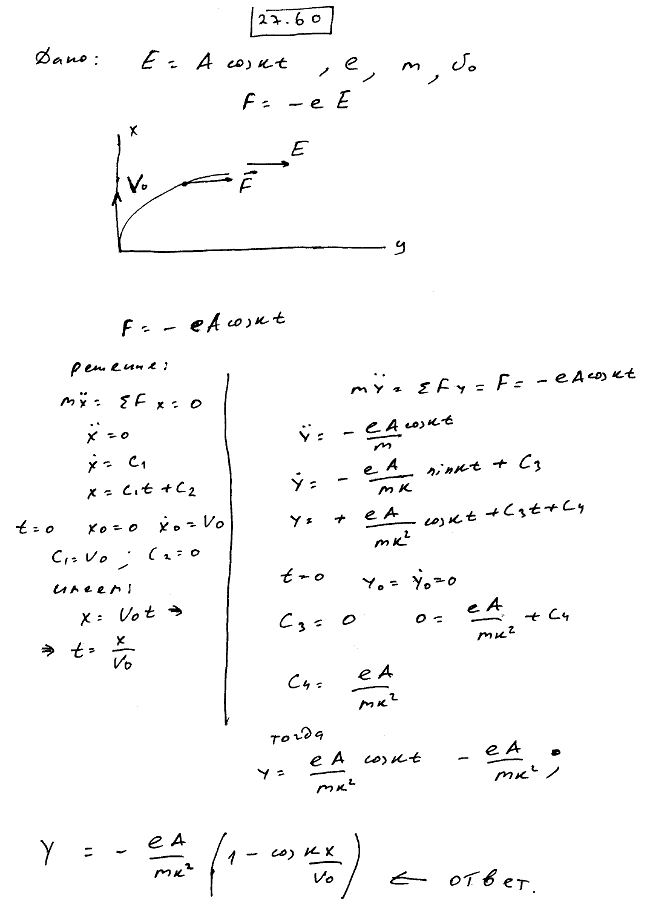 27.60
Дано: E = A cos кt , e, m, v₀
F = -e E
x
E
V₀
F
y
F = - eA cos кt
решение:
mẍ = ΣFx = 0
ẍ = 0
ẋ = C₁
x = C₁t + C₂
t=0 x₀=0 ẋ₀=V₀
C₁=V₀ ; C₂=0
имеем:
x = V₀t ⇒
⇒ t = x/V₀
mÿ = ΣFy = F = -eA cos кt
ÿ = - eA cos кt/m
ẏ = - eA/mк sin кt + C₃
y = + eA/mк² cos кt + C₃t + C₄
t=0 y₀ = ẏ₀ = 0
C₃ = 0 0 = eA/mк² + C₄
C₄ = eA/mк²
тогда
y = eA/mк² cos кt - eA/mк² ;
Y = - eA/mк² (1 - cos кx/V₀) ← ответ.